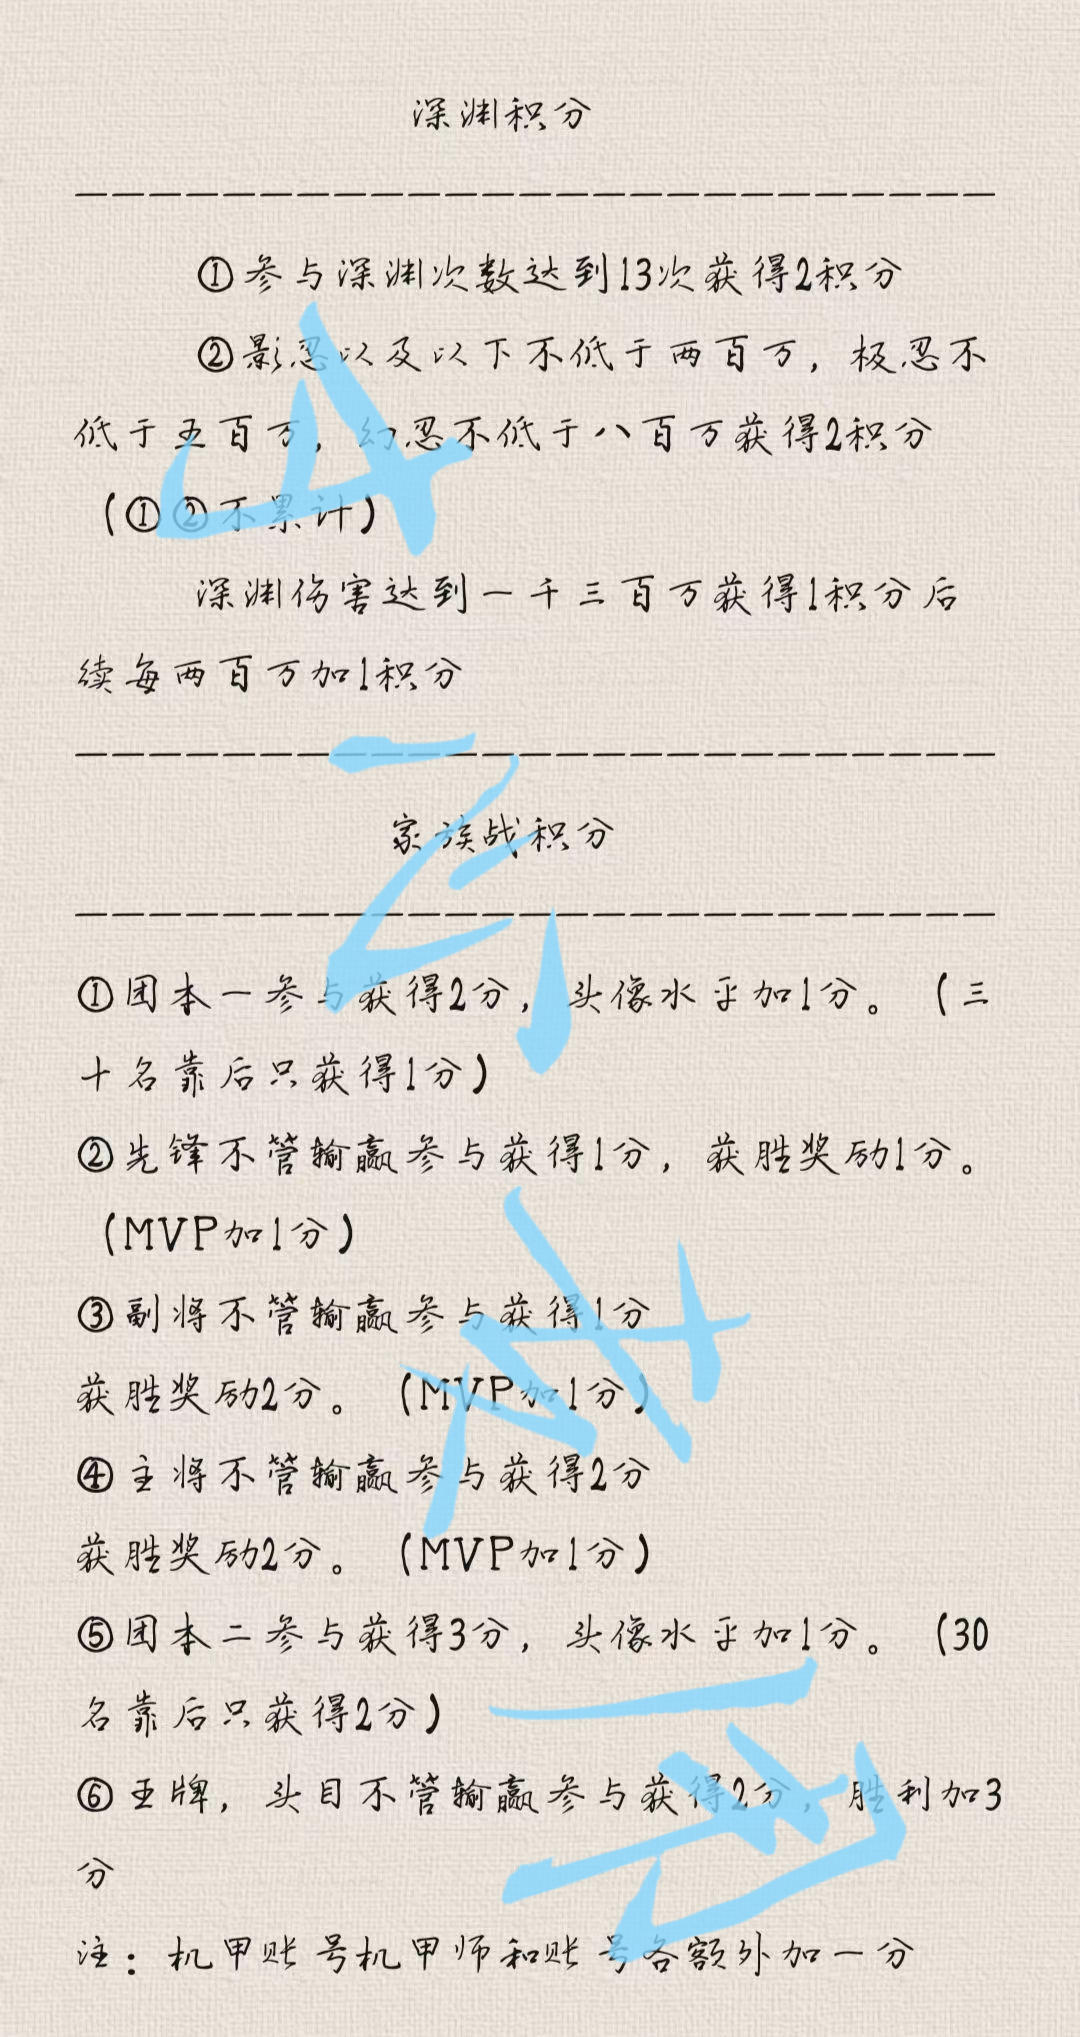 深渊积分
————————————————————
①参与深渊次数达到13次获得2积分
②影忍以及以下不低于两百万，极忍不
低于五百万，幻忍不低于八百万获得2积分
（①②不累计）
深渊伤害达到一千三百万获得1积分后
续每两百万加1积分
————————————————————
家族战积分
————————————————————
①团本一参与获得2分，头像水平加1分。（三
十名靠后只获得1分）
②先锋不管输赢参与获得1分，获胜奖励1分。
（MVP加1分）
③副将不管输赢参与获得1分
获胜奖励2分。（MVP加1分）
④主将不管输赢参与获得2分
获胜奖励2分。（MVP加1分）
⑤团本二参与获得3分，头像水平加1分。（30
名靠后只获得2分）
⑥王牌，头目不管输赢参与获得2分，胜利加3
分
注：机甲账号机甲师和账号各额外加一分